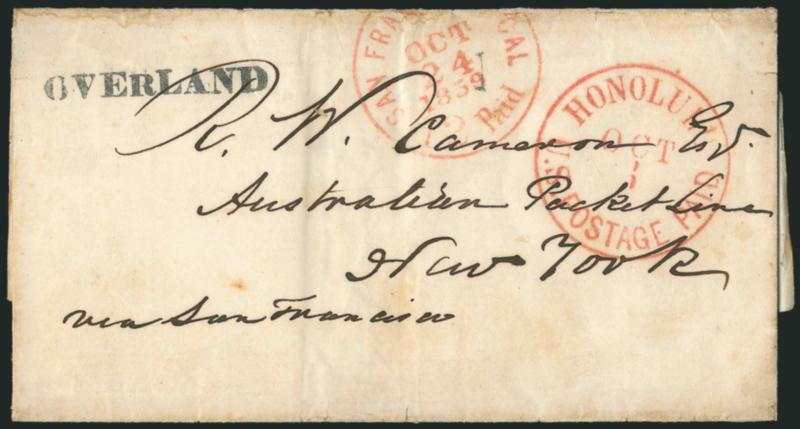 OVERLAND
SAN FRANCISCO CAL
OCT
24
1859
Paid
HONOLULU
OCT
U.S. POSTAGE PAID
R. W. Cameron Esq.
Australian Packet Line
New York
via San Francisco